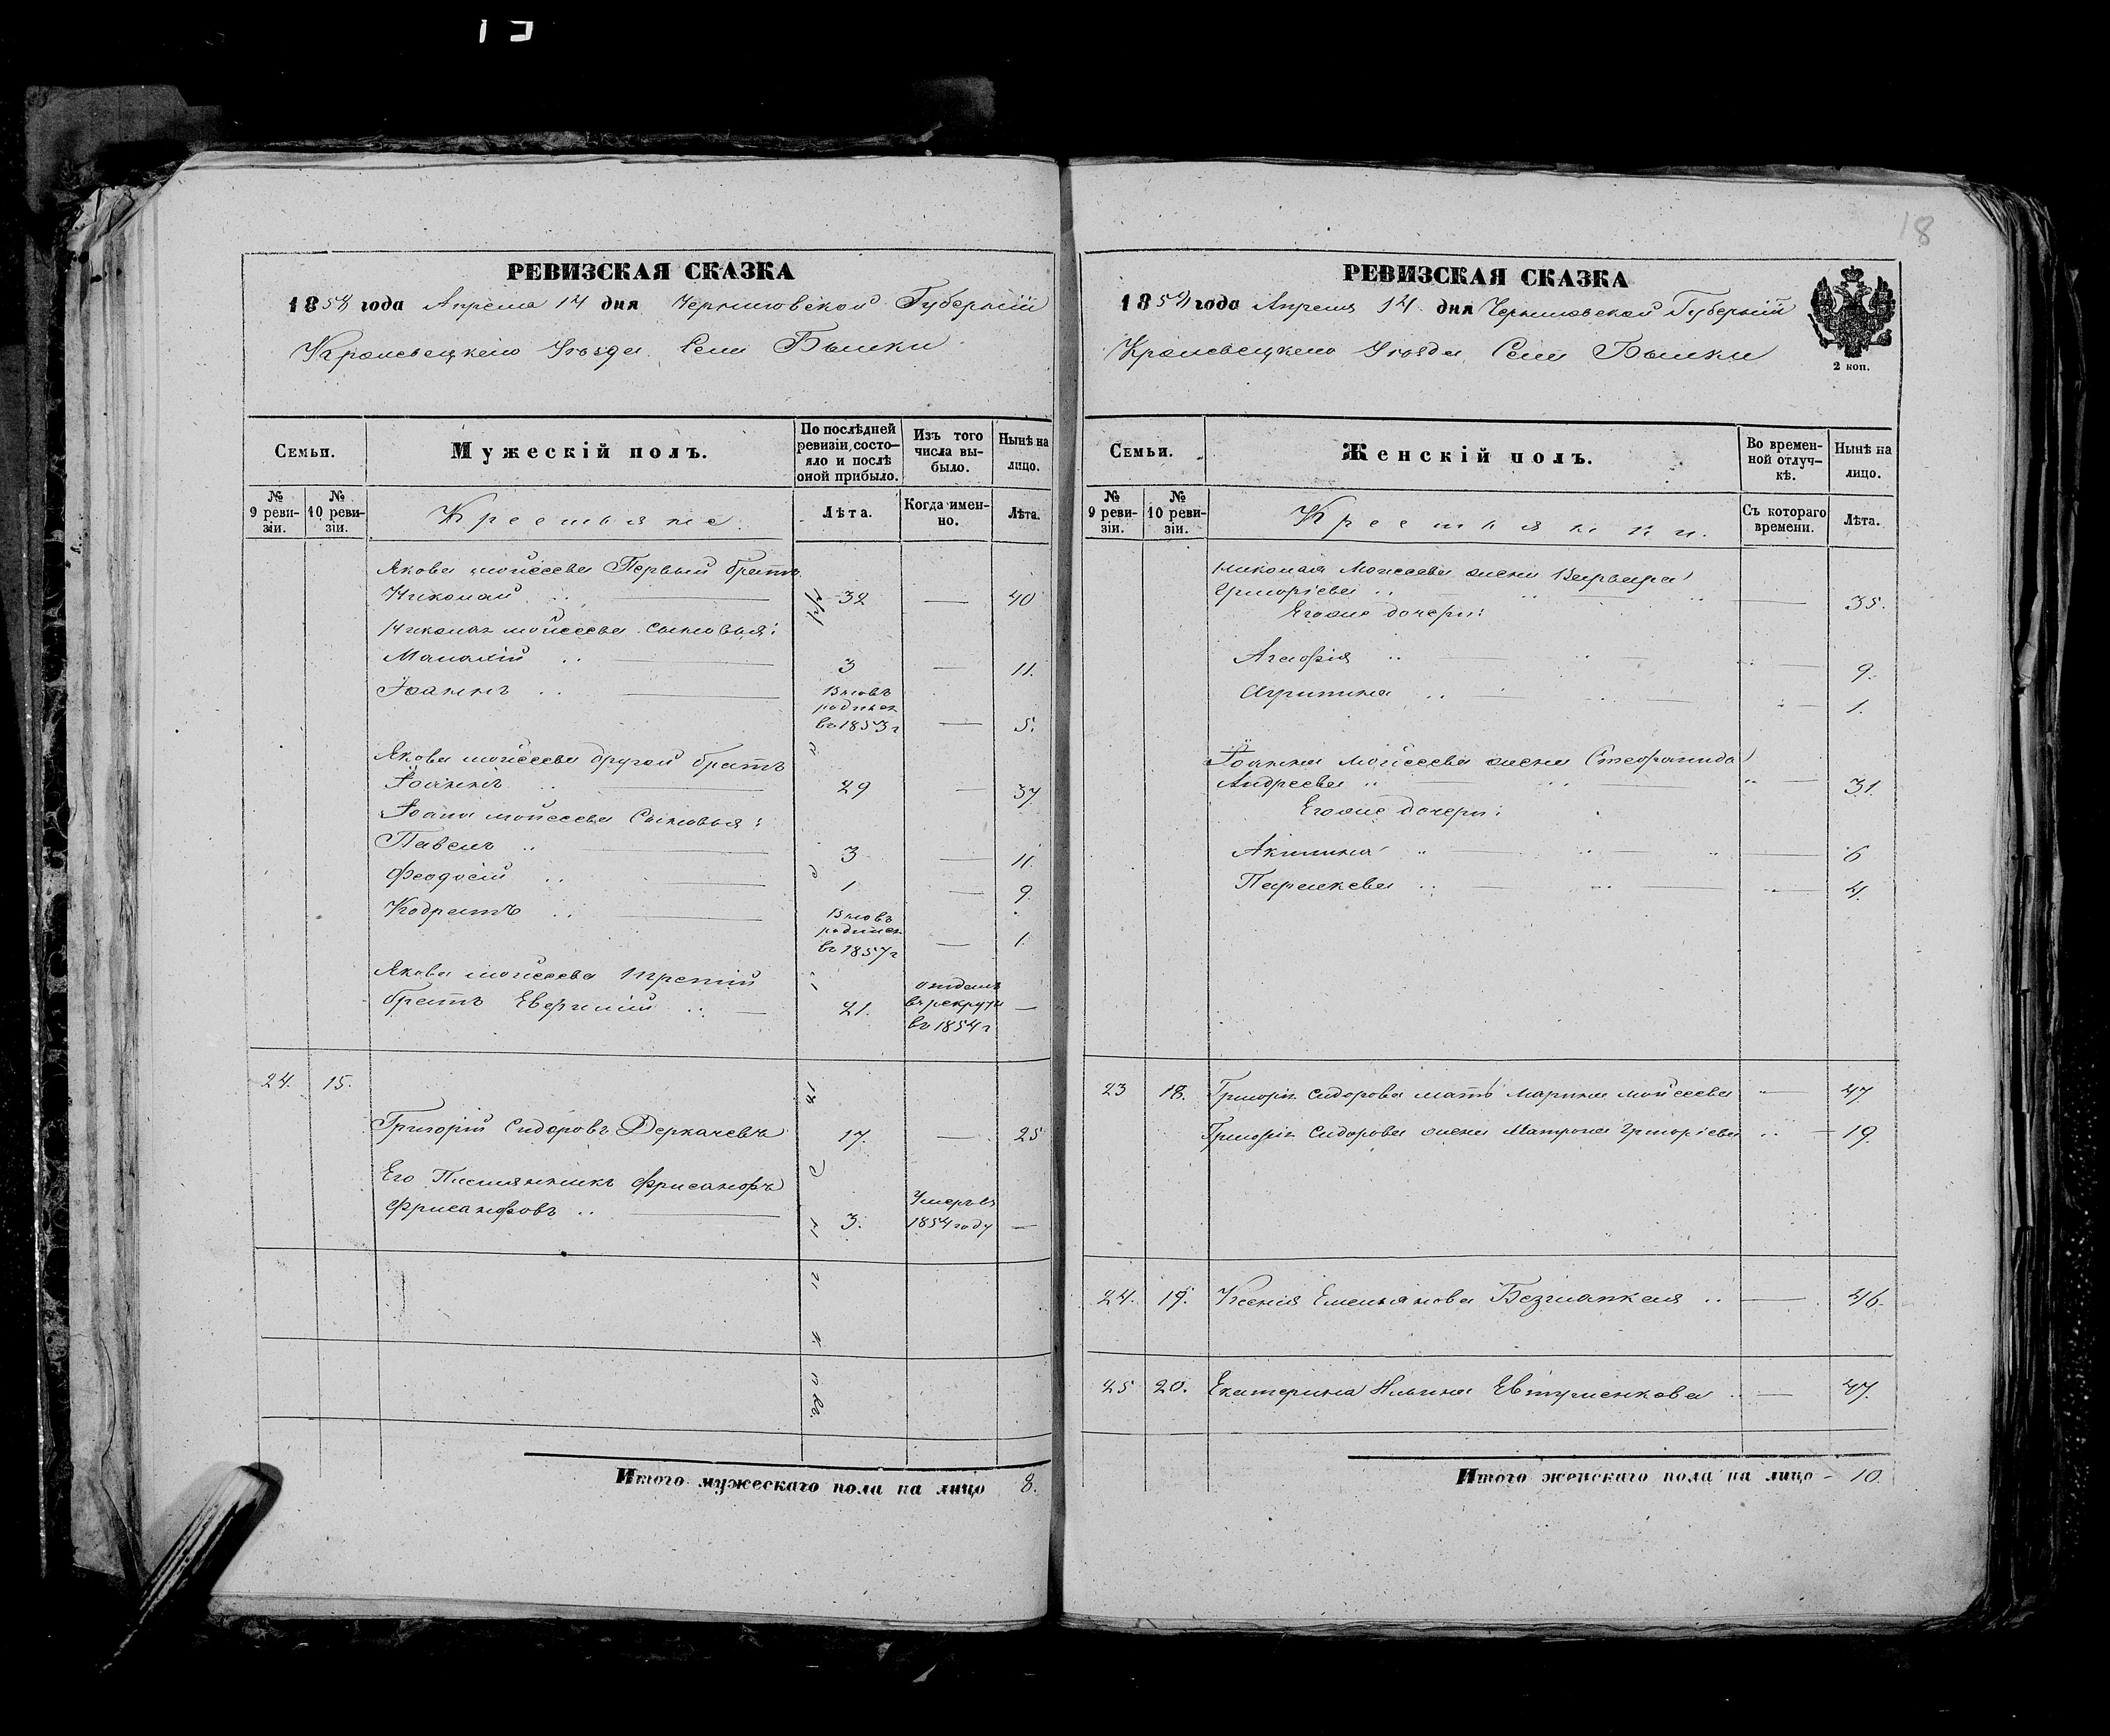 18
РЕВИЗСКАЯ СКАЗКА
1858 года Апреля 14 дня Черниговской Губерніи
Кролевецкаго Уезда Села Быики
Семьи.
Мужескій полъ.
По послѣдней ревизіи, состо-
яло и послѣ
оной прибыло.
Изъ того
числа вы-
было.
Нынѣ на
лицо.
№
9 реви-
зіи.
№
10 реви-
зіи.
Крестьяне.
Лѣта.
Когда имен-
но.
Лѣта.
Якова Мойсеева Первый братъ
Николай .. 32 — 40
Николая Мойсеева сыновья:
Малахій .. 3 — 11.
Іоаннъ .. Вновь
родился
въ 1853 г — 5.
Якова Мойсеева другой братъ
Іоаннъ .. 29 — 37
Іоана Мойсеева Сыновья:
Павелъ .. 3 — 11.
Феодосій .. 1 — 9.
Кодратъ .. Вновь
родился
въ 1857 г — 1.
Якова Мойсеева третій
братъ Евгеній .. — 21. отданъ
въ рекруты
въ 1854 г —
24. 15.
Григорій Сидоровъ Деркачевъ 17. — 25
Его Племянникъ Фрисанфъ
Фрисанфовъ .. 3. Умеръ въ
1854 году —
Итого мужескаго пола на лицо 8.
РЕВИЗСКАЯ СКАЗКА
1858 года Апреля 14 дня Черниговской Губерніи
Кролевецкаго Уезда Села Быики
2 коп.
Семьи.
Женскій полъ.
Во времен-
ной отлуч-
кѣ.
Нынѣ на
лицо.
№
9 реви-
зіи.
№
10 реви-
зіи.
Крестьянки.
Съ котораго
времени.
Лѣта.
Николая Мойсеева жена Варвара
Григоріева .. — 35.
Егоже дочери:
Агафія .. — 9.
Агрипина .. — 1.
Іоанна Мойсеева жена Стефанида
Андреева .. — 31.
Егоже дочери:
Акилина .. — 6
Параскева .. — 4.
23 18. Григорія Сидорова мать Марина Мойсеева — 47
Григорія Сидорова жена Матрона Григоріева .. — 19.
24. 19. Ксенія Емельянова Безглапкая .. — 46.
25 20. Екатерина Ильина Евтушенкова .. — 47.
Итого женскаго пола на лицо — 10.